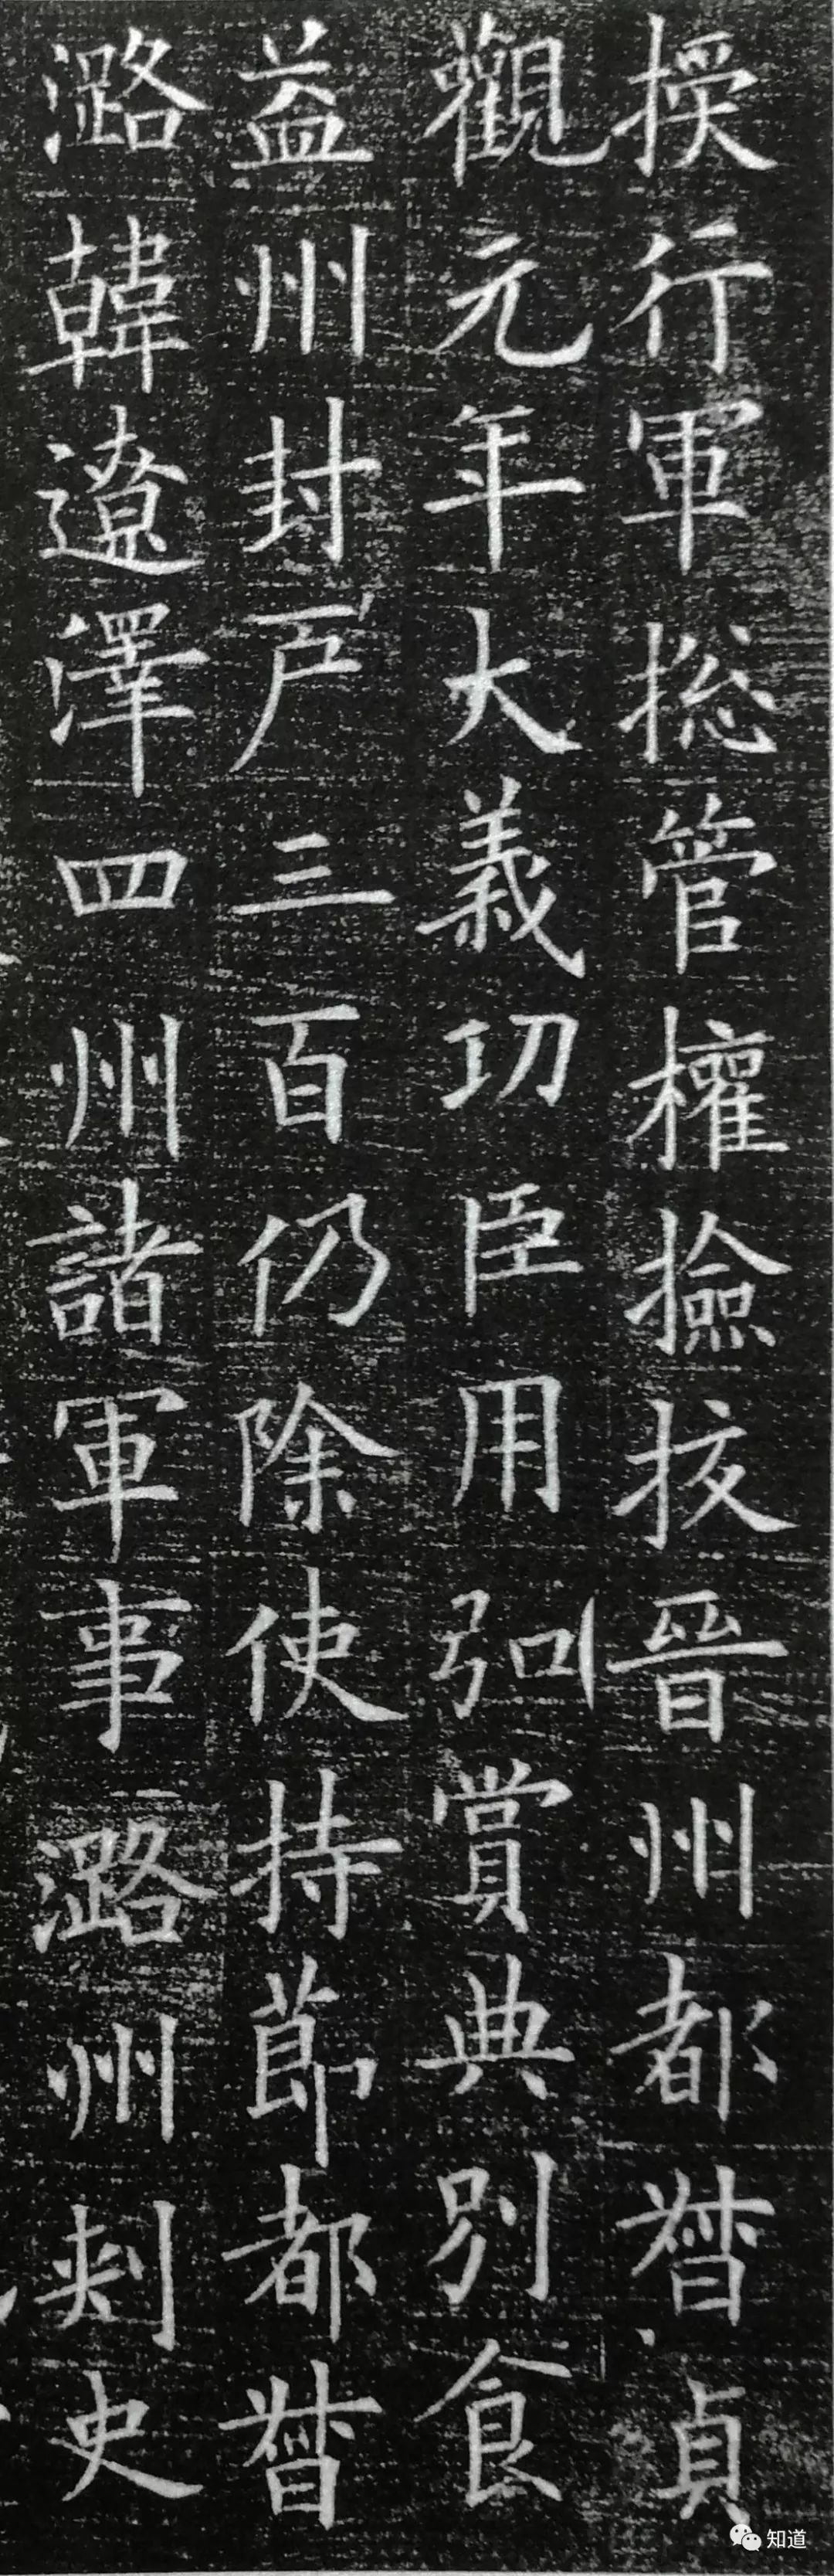 授行軍捴管權撿挍晉州都督貞
觀元年大義功臣用弘賞典別食
益州封户三百仍除使持節都督
潞韓遼澤四州諸軍事潞州刾史
知道